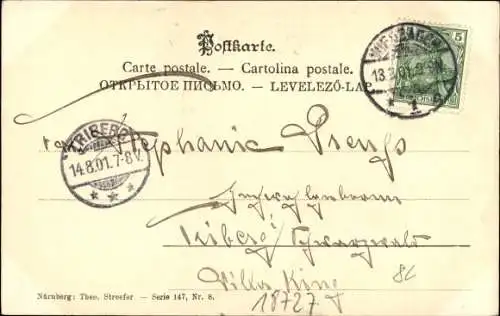 Postkarte.
Carte postale. — Cartolina postale.
ОТКРЫТОЕ ПИСЬМО. — LEVELEZŐ-LAP
5
WIESBADEN
13.8.01
1
TRIBERG
14.8.01.7-8V.
Stephanie
Triberg Schwarzwald
Villa King
18727
Nürnberg: Theo. Stroefer — Serie 147, Nr. 8.